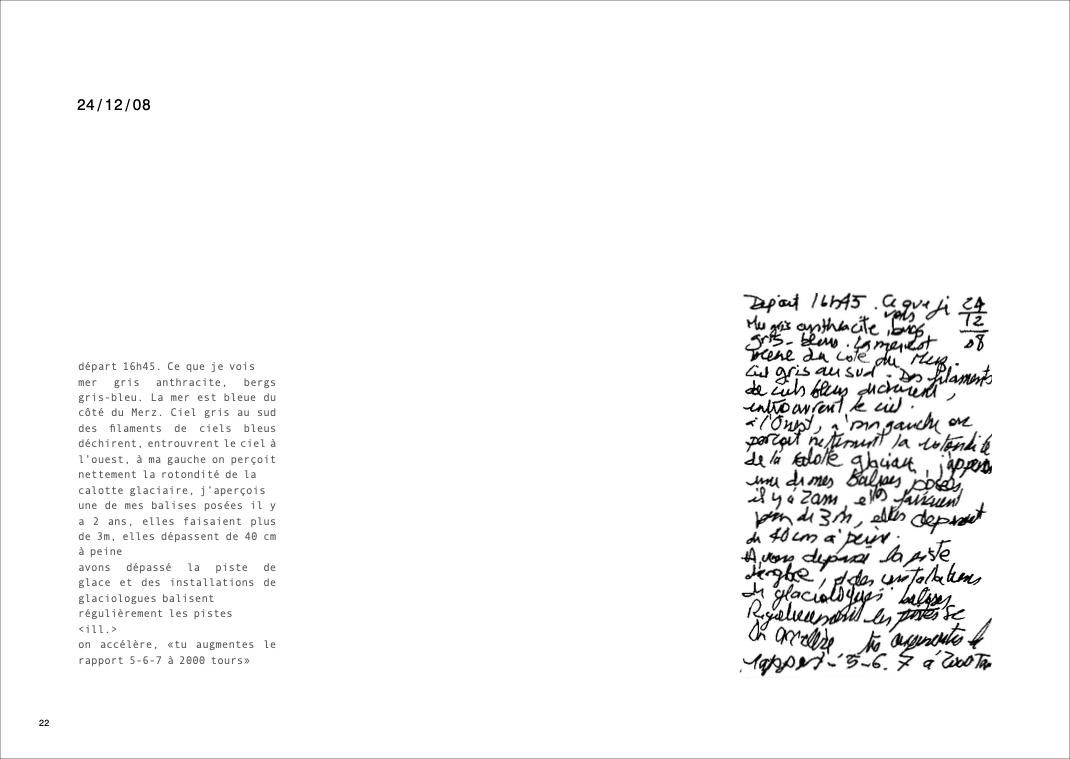 24/12/08
départ 16h45. Ce que je vois
mer gris anthracite, bergs
gris-bleu. La mer est bleue du
côté du Merz. Ciel gris au sud
des filaments de ciels bleus
déchirent, entrouvrent le ciel à
l'ouest, à ma gauche on perçoit
nettement la rotondité de la
calotte glaciaire, j'aperçois
une de mes balises posées il y
a 2 ans, elles faisaient plus
de 3m, elles dépassent de 40 cm
à peine
avons dépassé la piste de
glace et des installations de
glaciologues balisent
régulièrement les pistes
<ill.>
on accélère, «tu augmentes le
rapport 5-6-7 à 2000 tours»
Départ 16h45. Ce que je 24
vois 12
Mer gris anthracite, bergs 08
gris-bleu. La mer est
bleue du coté du Merz.
Ciel gris au sud. Des filaments
de ciels bleus déchirent,
entrouvrent le ciel.
à l'Ouest, à ma gauche on
perçoit nettement la rotondité
de la calotte glaciaire, j'aperçois
une de mes balises posées
il y a 2 ans, elles faisaient
plus de 3m, elles dépassent
de 40 cm à peine.
Avons dépassé la piste
de glace, et des installations
de glaciologues balisent
Régulièrement les pistes
On accélère tu augmentes le
rapport - 5-6. 7 à 2000 Trs
22